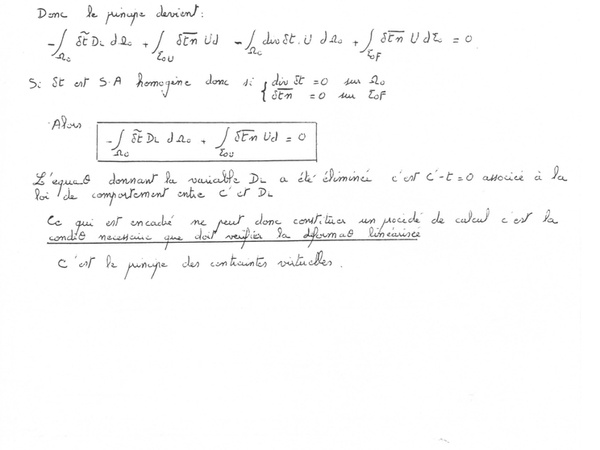 Donc le principe devient:
-∫Ω₀ δt̃ D_L dΩ₀ + ∫Σ₀U δt̅n̅ Ud - ∫Ω₀ div δt. U dΩ₀ + ∫Σ₀F δt̅n̅ U dΣ₀ = 0
Si δt est S.A homogène donc si { div δt = 0 sur Ω₀
δt̅n̅ = 0 sur Σ₀F
Alors
-∫Ω₀ δt̃ D_L dΩ₀ + ∫Σ₀U δt̅n̅ Ud = 0
L'équaθ donnant la variable D_L a été éliminée c'est C'-t=0 associée à la
loi de comportement entre C' et D_L
Ce qui est encadré ne peut donc constituer un procédé de calcul c'est la
condiθ necessaire que doit verifier la déformaθ linéarisée
C'est le principe des contraintes virtuelles.